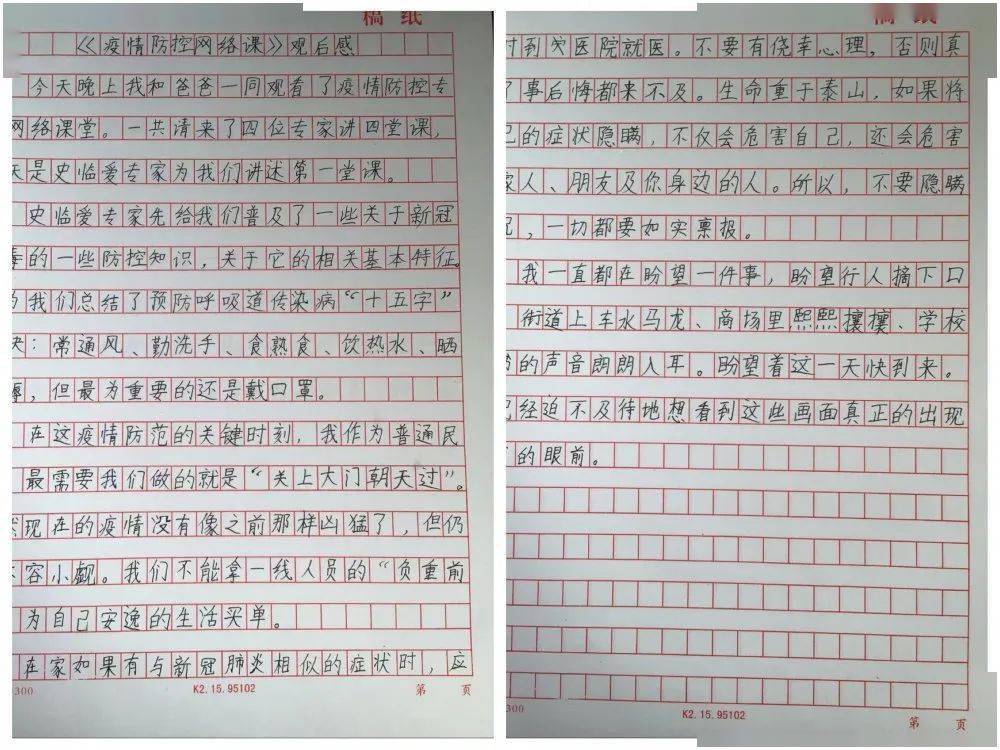 稿纸
《疫情防控网络课》观后感
今天晚上我和爸爸一同观看了疫情防控专
网络课堂。一共请来了四位专家讲四堂课，
天是史临爱专家为我们讲述第一堂课。
史临爱专家先给我们普及了一些关于新冠
毒的一些防控知识，关于它的相关基本特征。
为我们总结了预防呼吸道传染病“十五字”
诀：常通风、勤洗手、食熟食、饮热水、晒
，但最为重要的还是戴口罩。
在这疫情防范的关键时刻，我作为普通民
最需要我们做的就是“关上大门朝天过”。
现在的疫情没有像之前那样凶猛了，但仍
不容小觑。我们不能拿一线人员的“负重前
为自己安逸的生活买单。
在家如果有与新冠肺炎相似的症状时，应
300
K2.15.95102
第 页
稿纸
时到医院就医。不要有侥幸心理，否则真
了事后悔都来不及。生命重于泰山，如果将
己的症状隐瞒，不仅会危害自己，还会危害
家人、朋友及你身边的人。所以，不要隐瞒
，一切都要如实禀报。
我一直都在盼望一件事，盼望行人摘下口
街道上车水马龙、商场里熙熙攘攘、学校
的声音朗朗入耳。盼望着这一天快到来。
已经迫不及待地想看到这些画面真正的出现
的眼前。
300
K2.15.95102
第 页